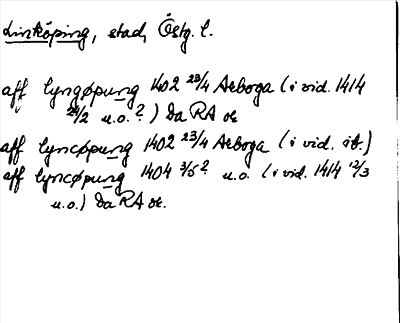 Linköping, stad, Östg. l.
aff lyngøpung 1402 23/4 Arboga (i vid. 1414
24/2 u.o.?) Da RA or.
aff lyncøpung 1402 23/4 Arboga (i vid. ib.)
aff lyncøpung 1404 3/5? u.o. (i vid. 1414 12/3
u.o.) Da RA or.